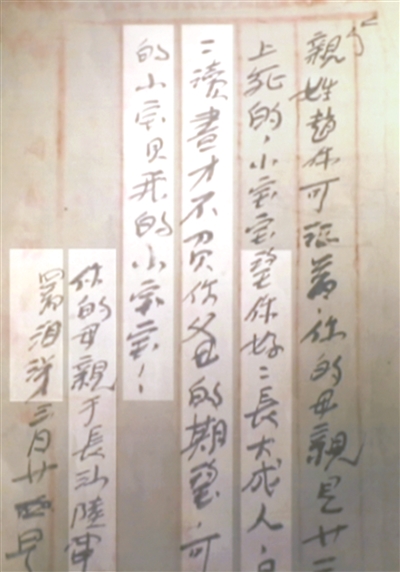 親姓趙你可記着,你的母親是廿
上死的,小宝宝望你好〻長大成人,
〻讀書才不負你父母的期望,可
的小宝贝我的小宝宝!
你的母親于長沙陸軍
署泪涕三月廿